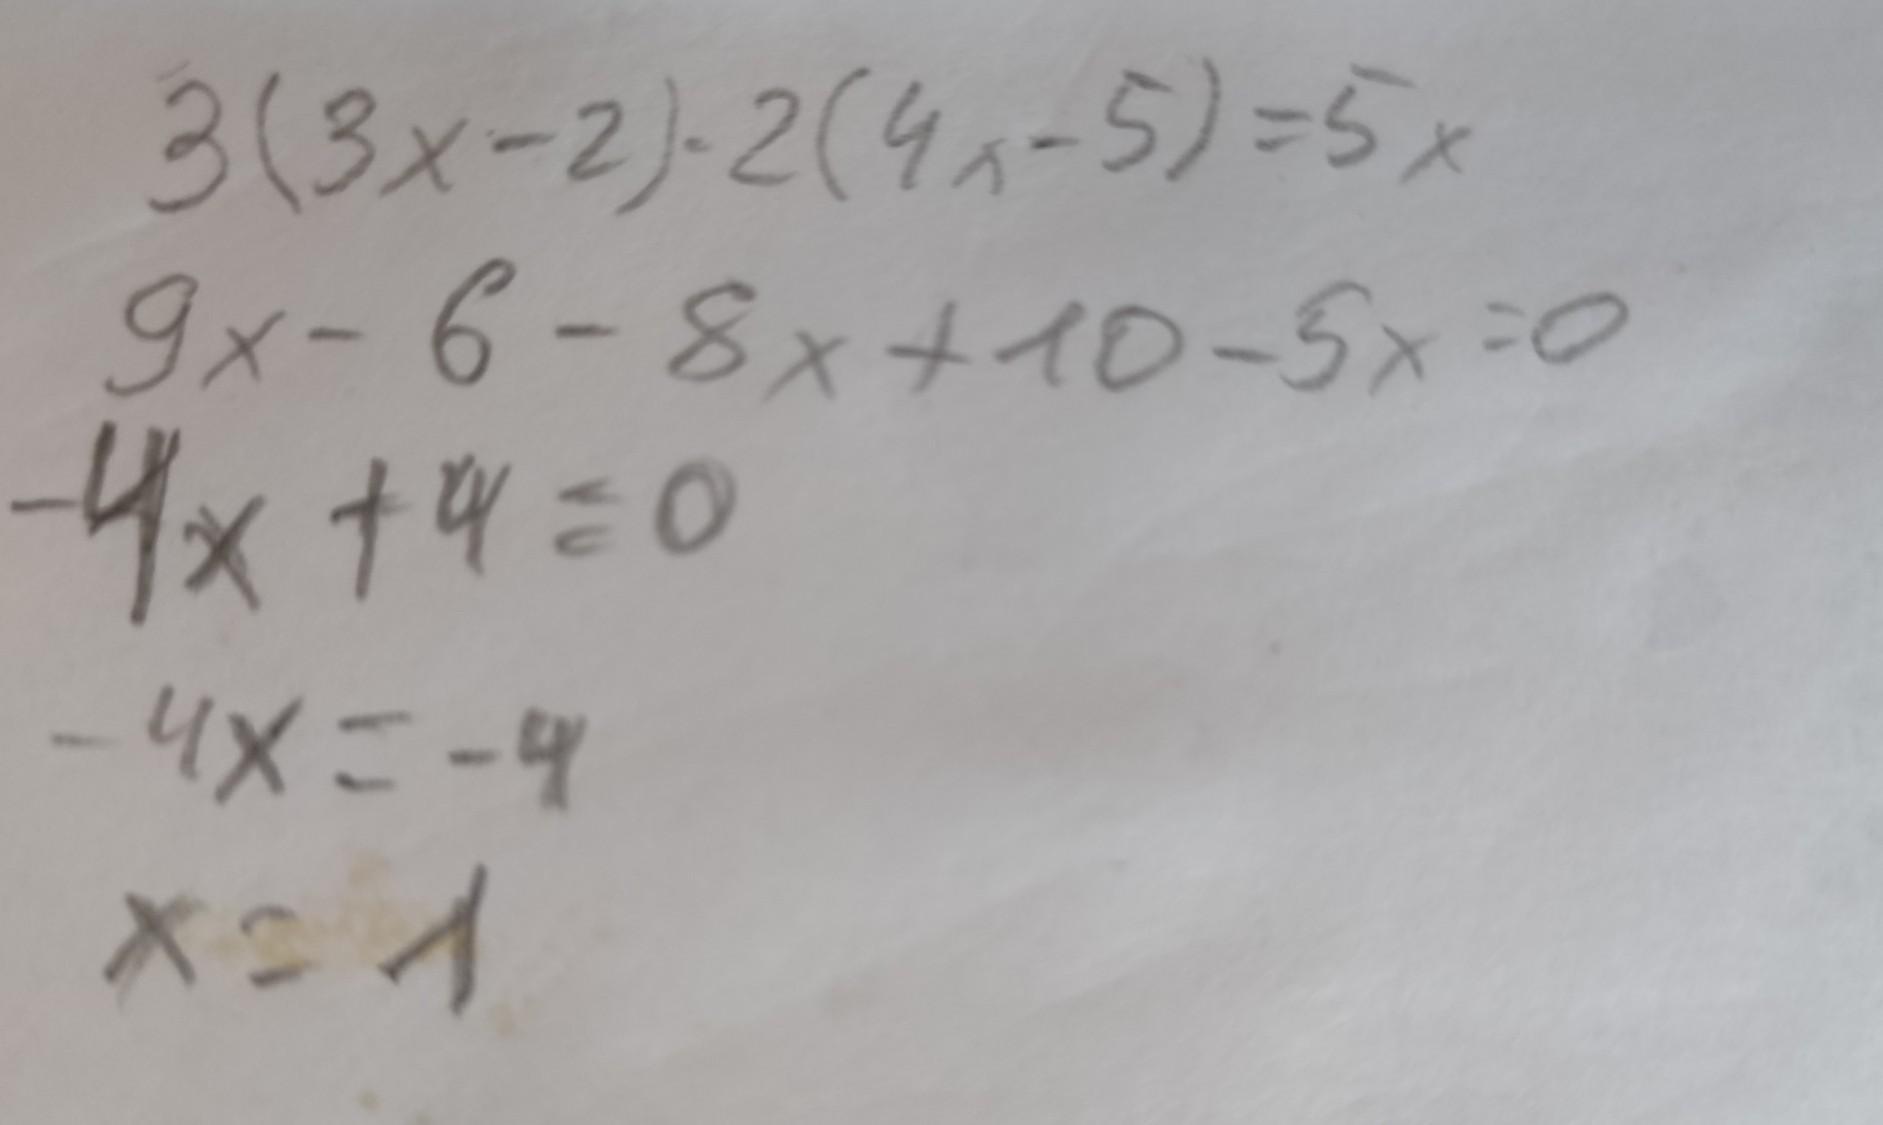 3(3x-2)-2(4x-5)=5x
9x-6-8x+10-5x=0
-4x+4=0
-4x=-4
x=1